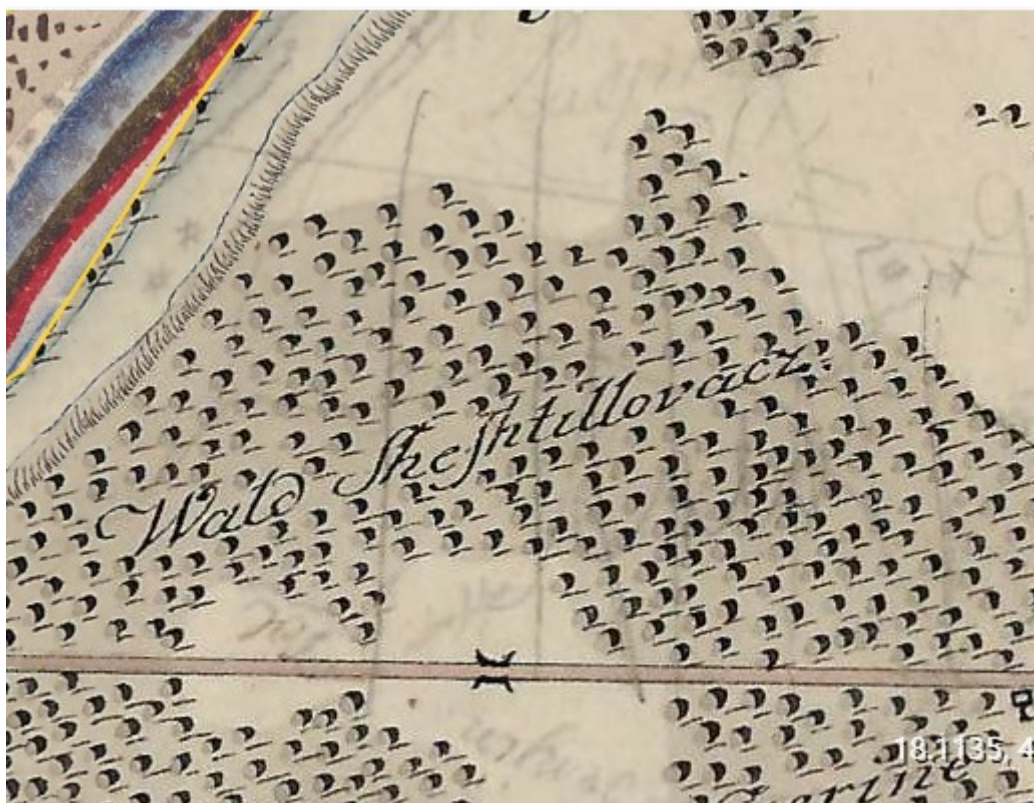 Wald Sheshtillovacz.
18.1135, 4